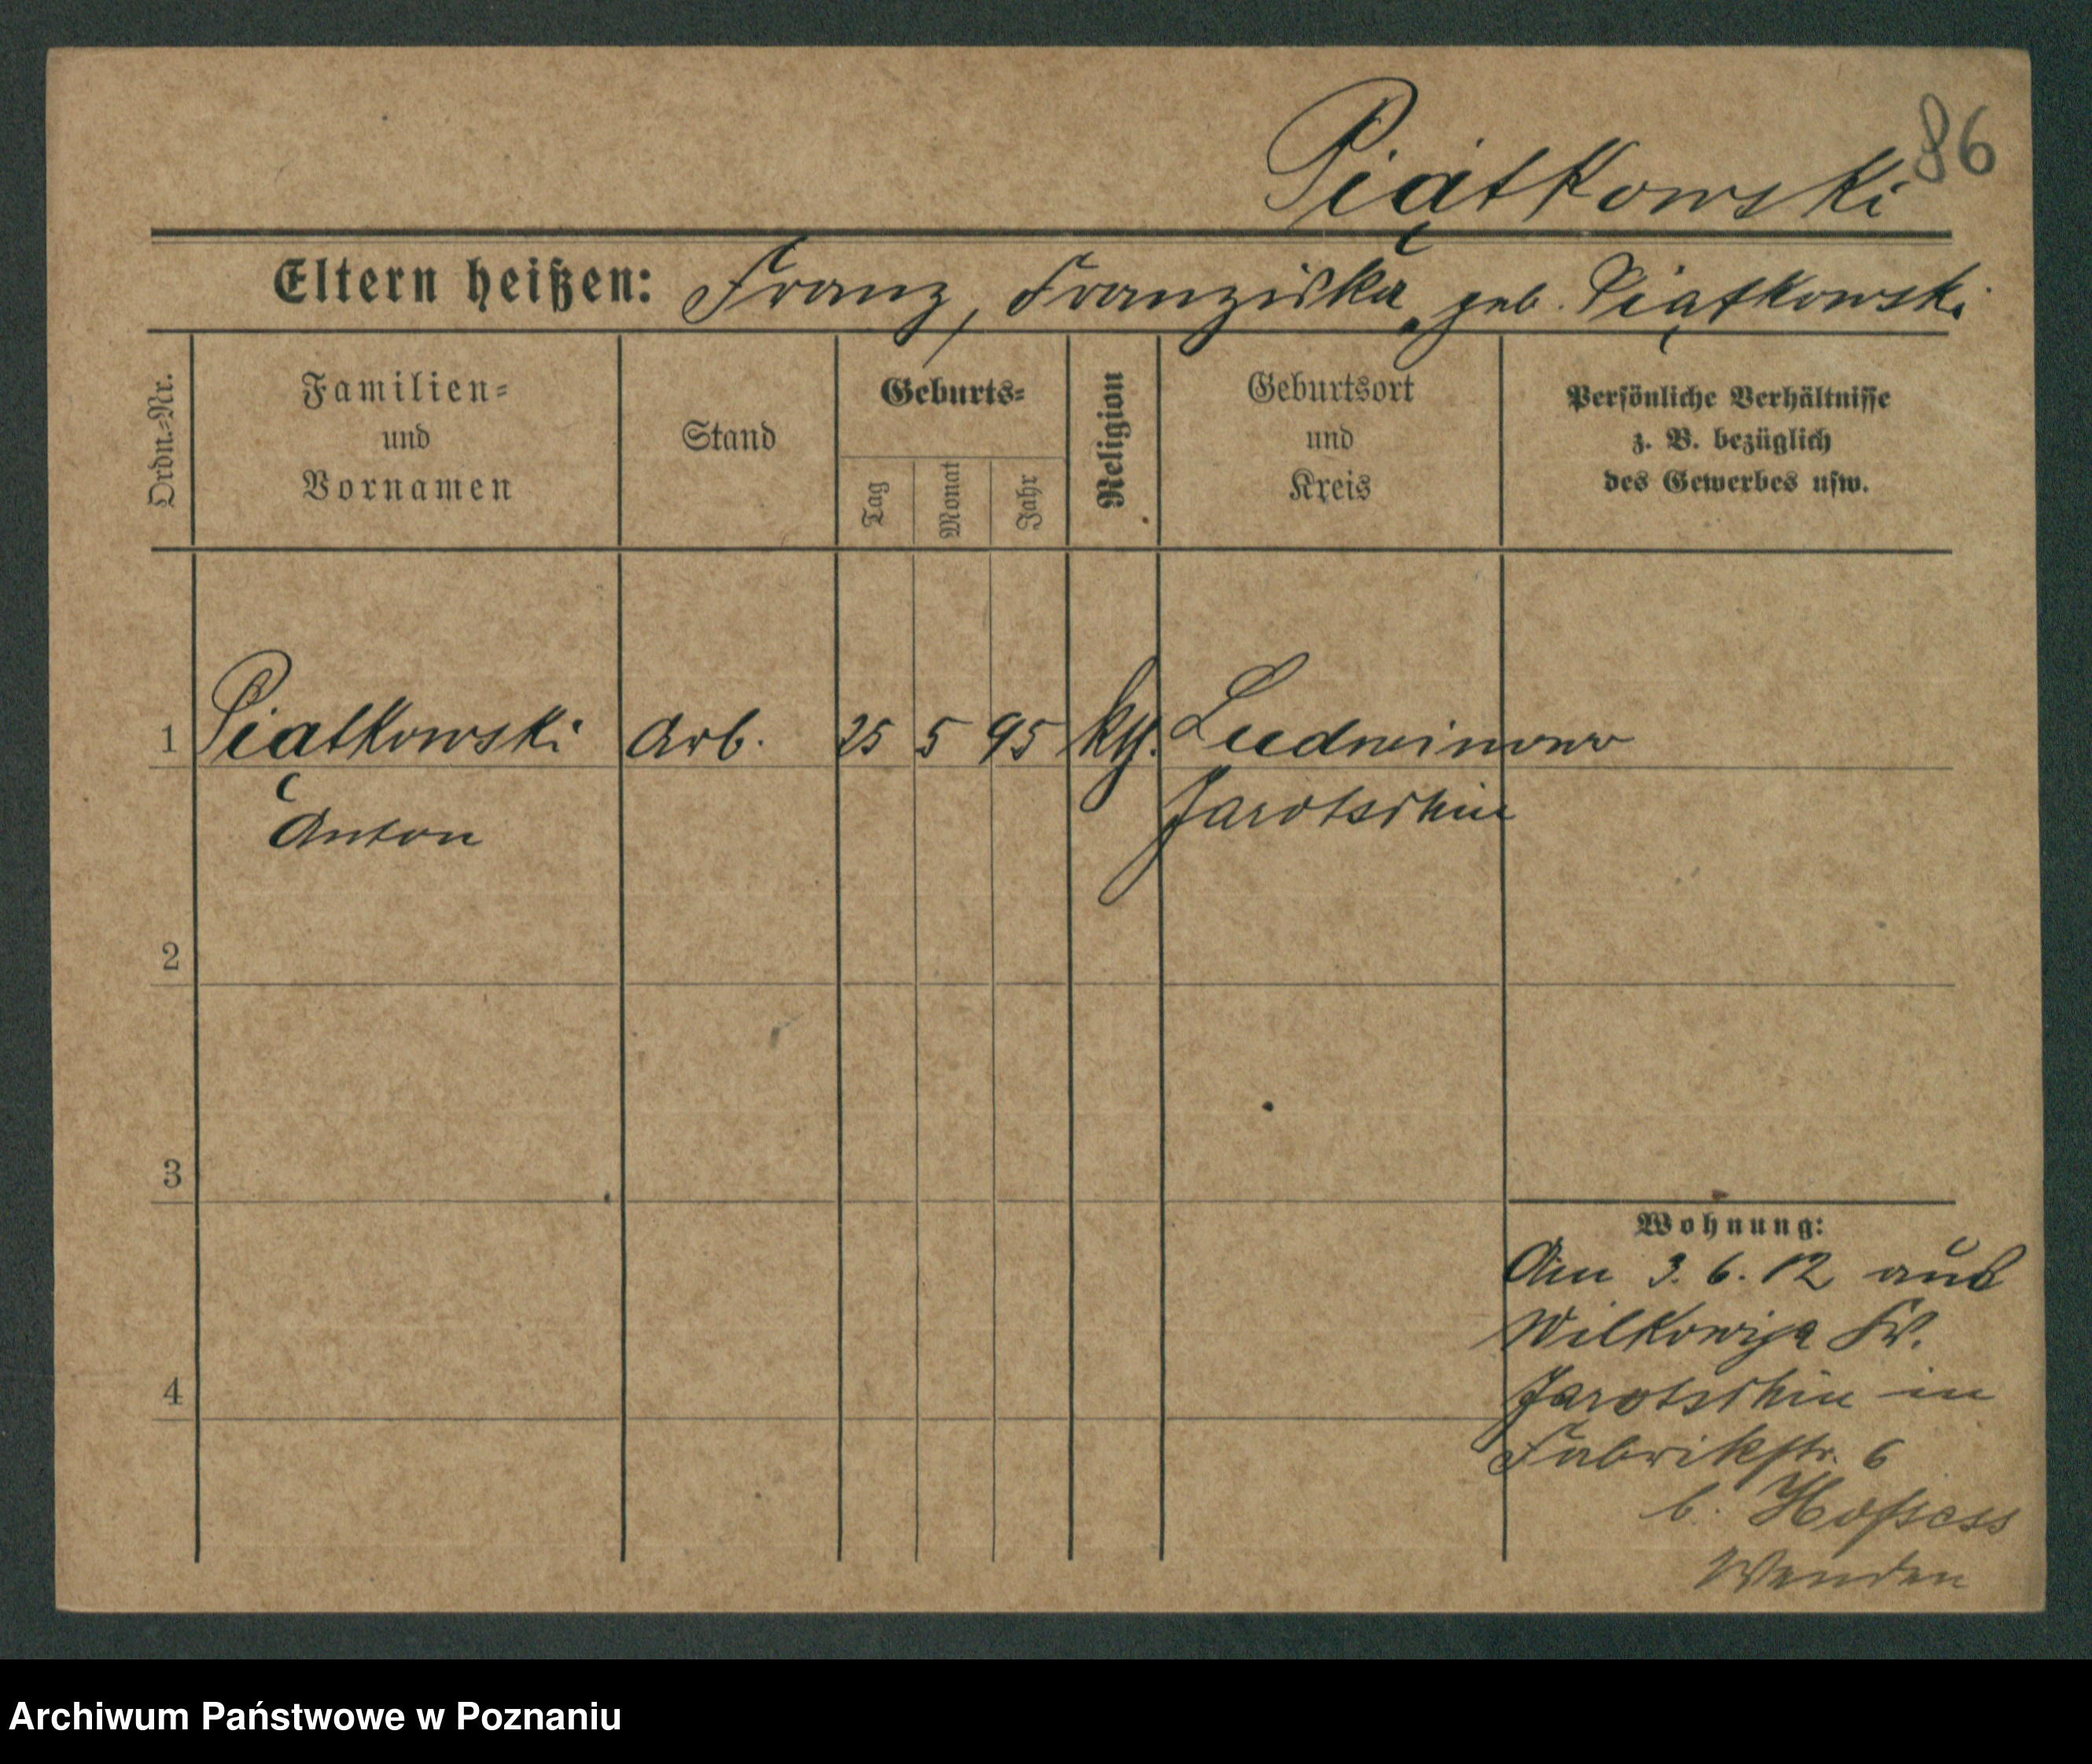 86
Piątkowski
Eltern heißen: Franz, Franziska, geb. Piątkowski
Ordn.-Nr.
Familien-
und
Vornamen
Stand
Geburts-
Tag
Monat
Jahr
Religion
Geburtsort
und
Kreis
Persönliche Verhältnisse
z. B. bezüglich
des Gewerbes usw.
1 Piątkowski Arb. 25 5 95 kth. Ludwinowo
Anton Jarotschin
2
3
4
Wohnung:
Am 3.6.12 aus
Wilkowija Kr.
Jarotschin in
Fabrikstr. 6
b.
Wenden
Archiwum Państwowe w Poznaniu